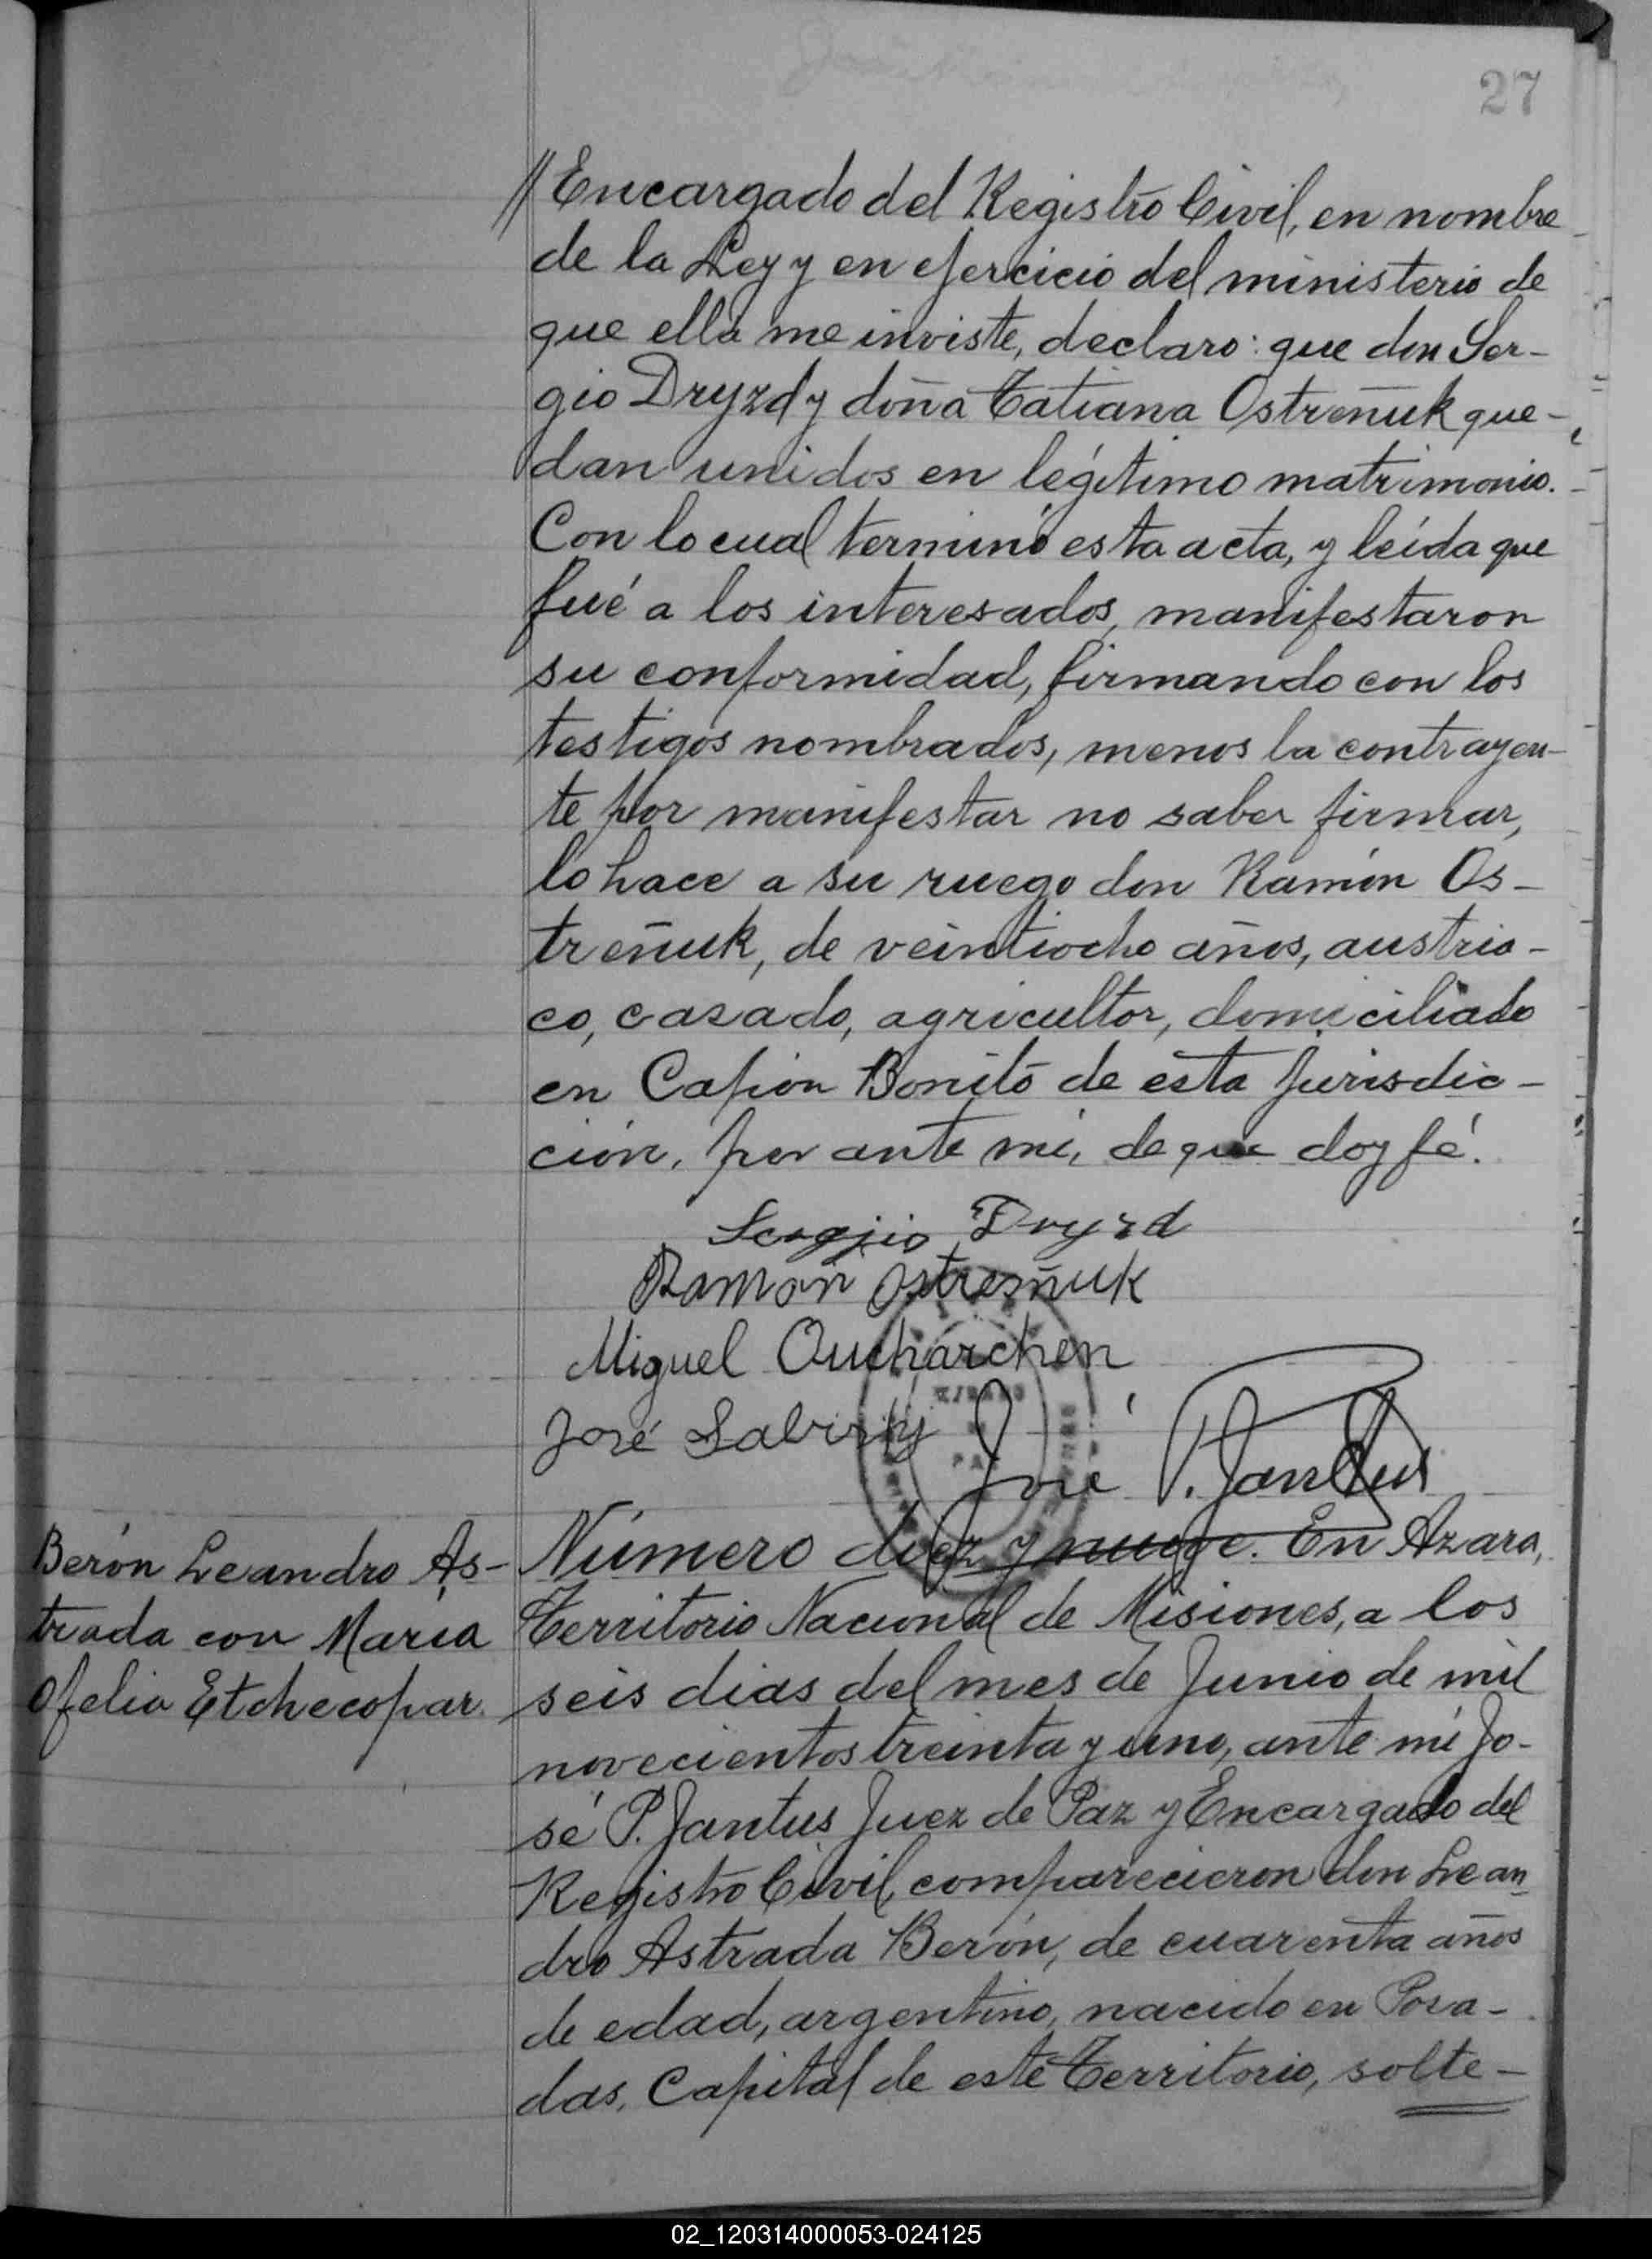 27
//Encargado del Registro Civil, en nombre
de la Ley y en ejercicio del ministerio de
que ella me inviste, declaro: que don Ser-
gio Dryzd y doña Tatiana Ostreñuk que-
dan unidos en legítimo matrimonio.
Con lo cual terminó esta acta, y leída que
fué a los interesados, manifestaron
su conformidad, firmando con los
testigos nombrados, menos la contrayen-
te por manifestar no saber firmar,
lo hace a su ruego don Ramón Os-
treñuk, de veintiocho años, austria-
co, casado, agricultor, domiciliado
en Capión Bonito de esta Jurisdic-
ción, por ante mí, de que doy fé.
Sergio Dryzd
Ramón Ostreñuk
Miguel Oucharchen
José
José P. Jantus
Berón Leandro As-
trada con María
Ofelia Etchecopar.
Número diez y nueve. En Azara,
Territorio Nacional de Misiones, a los
seis dias del mes de Junio de mil
novecientos treinta y uno, ante mí Jo-
sé P. Jantus Juez de Paz y Encargado del
Registro Civil, comparecieron don Lean
dro Astrada Berón, de cuarenta años
de edad, argentino, nacido en Posa-
das, Capital de este Territorio, solte-
02_120314000053-024125